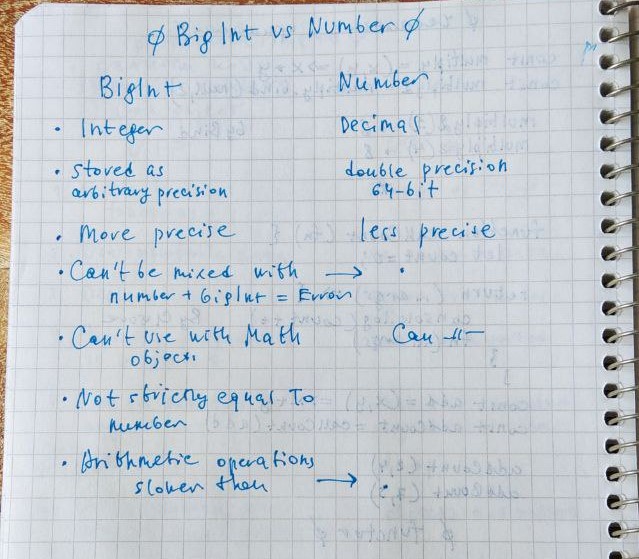 ø BigInt vs Number ø
BigInt Number
• Integer Decimal
• stored as double precision
arbitrary precision 64-bit
• More precise less precise
• Can't be mixed with → •
number + BigInt = Error
• Can't use with Math Can -||-
object
• Not strictly equal To
number
• Arithmetic operations
slower than → •